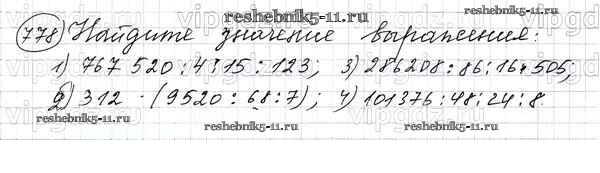 reshebnik5-11.ru
778) Найдите значение выражения:
1) 767 520 : 4 : 15 : 123; 3) 286208 : 86 : 16 * 505;
2) 312 · (9520 : 68 : 7); 4) 101376 : 48 : 24 : 8.
reshebnik5-11.ru
reshebnik5-11.ru